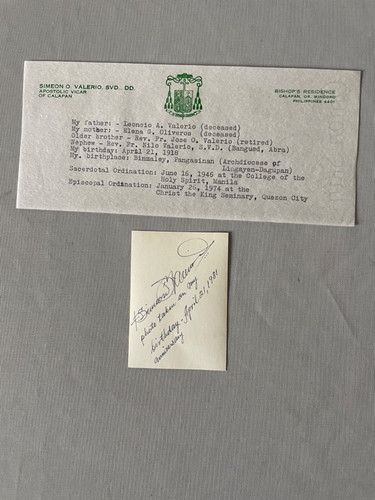 SIMEON O. VALERIO, SVD., DD.
APOSTOLIC VICAR
OF CALAPAN
BISHOP'S RESIDENCE
CALAPAN, OR. MINDORO
PHILIPPINES
My father: - Leoncio A. Valerio (deceased)
My mother: - Elena G. Oliveros (deceased)
Older brother - Rev. Fr. Jose O. Valerio (retired)
Nephew - Rev. Fr. Nilo Valerio, S.V.D. (Bangued, Abra)
My birthday: April 21, 1918
My. birthplace: Binmaley, Pangasinan (Archdiocese of
Lingayen-Dagupan)
Sacerdotal Ordination: June 16, 1946 at the College of the
Holy Spirit, Manila
Episcopal Ordination: January 26, 1974 at the
Christ the King Seminary, Quezon City
photo taken on my
birthday - April 21, 1981
anniversary